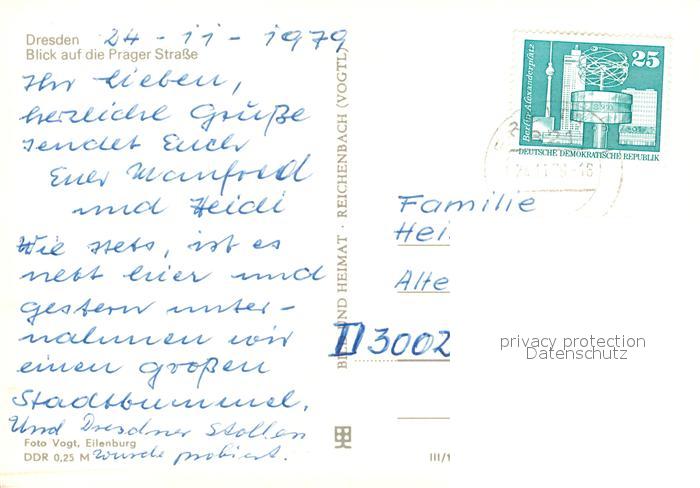 Dresden 24-11-1979
Blick auf die Prager Straße
Ihr Lieben,
herzliche Grüße
sendet Euch
Euer Manfred
und Heidi
Wie stets, ist es
nett hier und
gestern unter-
nahmen wir
einen großen
Stadtbummel.
Und Dresdner Stollen
wurde probiert.
Foto Vogt, Eilenburg
DDR 0,25 M
BILD UND HEIMAT · REICHENBACH (VOGTL)
III/1
Berlin-Alexanderplatz
25
DEUTSCHE DEMOKRATISCHE REPUBLIK
Familie
Hei
Alte
D 3002
privacy protection
Datenschutz